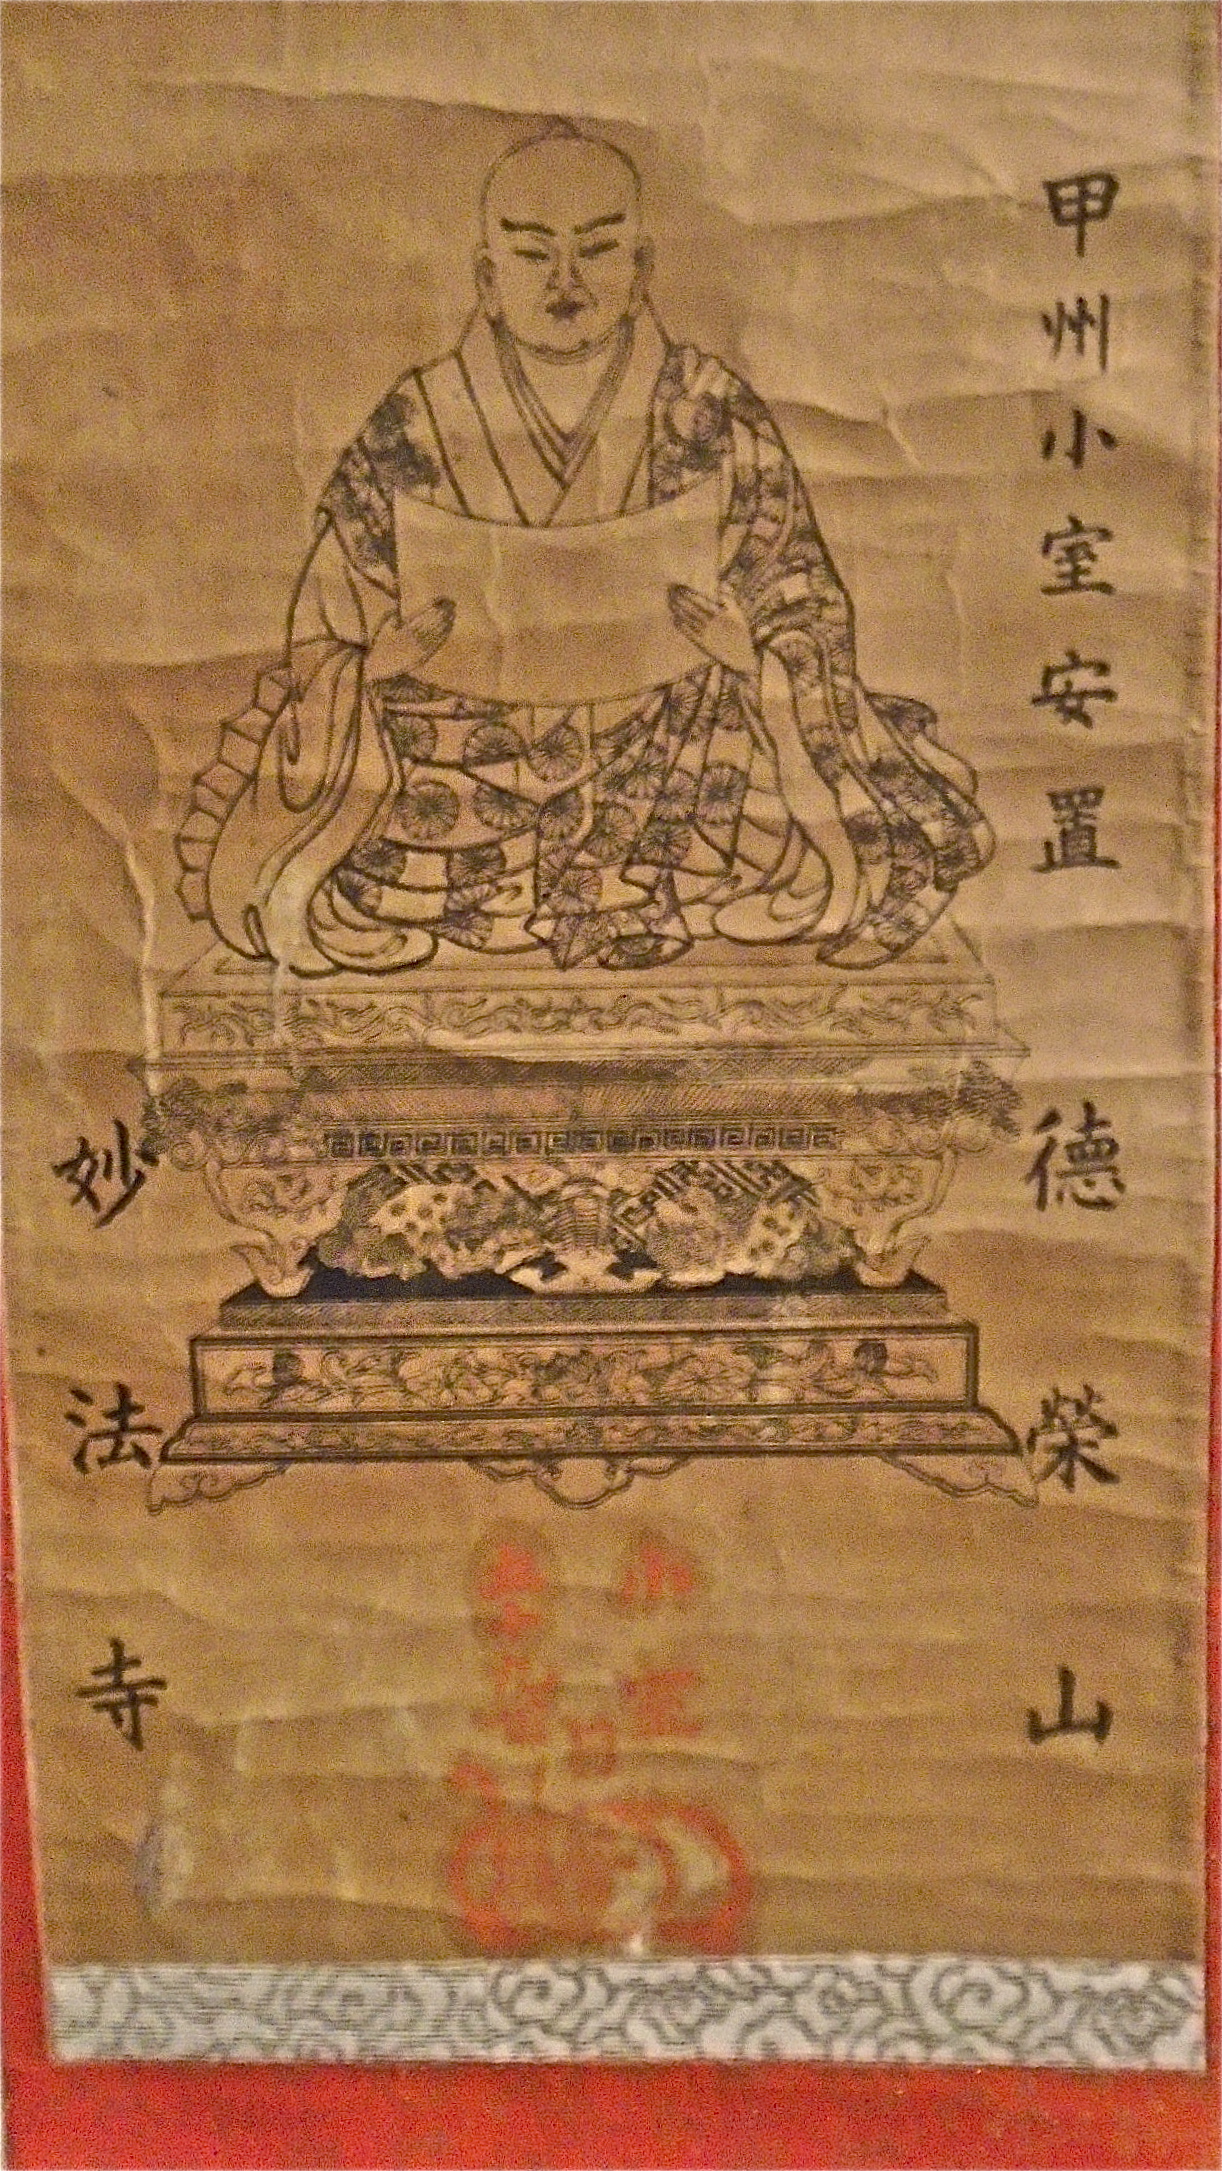 甲州小室安置
德榮山
妙法寺